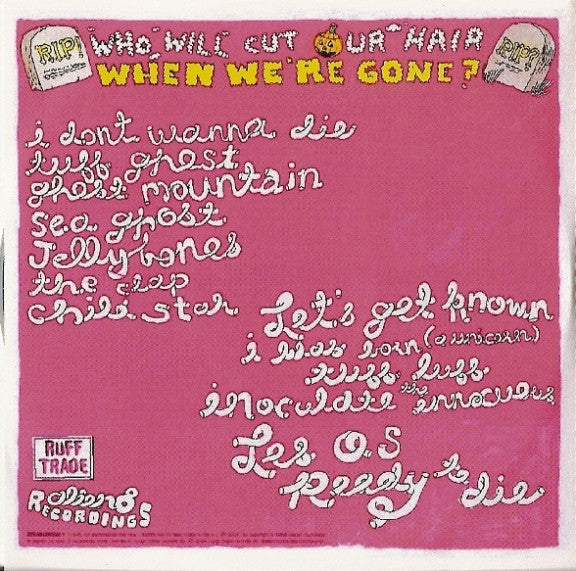 RIP!
"WHO" WILL CUT OUR HAIR
RIP?
WHEN WE'RE GONE?
i dont wanna die
tuff ghost
ghost mountain
sea ghost
Jellybones
the clap
child star
Let's get known
i was born (a unicorn)
tuff luff
inoculate the innocuous
Les Os
Ready to die
RUFF
TRADE
alien8
RECORDINGS